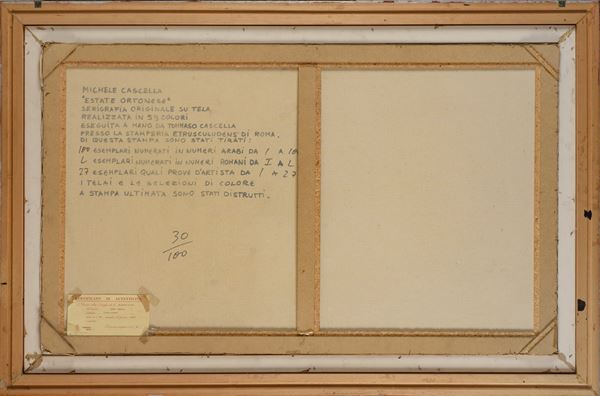 MICHELE CASCELLA
"ESTATE ORTONESE"
SERIGRAFIA ORIGINALE SU TELA
REALIZZATA IN 59 COLORI
ESEGUITA A MANO DA TOMMASO CASCELLA
PRESSO LA STAMPERIA ETRUSCULUDENS DI ROMA.
DI QUESTA STAMPA SONO STATI TIRATI:
100 ESEMPLARI NUMERATI IN NUMERI ARABI DA 1 A 100
L ESEMPLARI NUMERATI IN NUMERI ROMANI DA I A L
27 ESEMPLARI QUALI PROVE D'ARTISTA DA 1 A 27
I TELAI E LE SELEZIONI DI COLORE
A STAMPA ULTIMATA SONO STATI DISTRUTTI.
30/100
CERTIFICATO DI AUTENTICITÀ